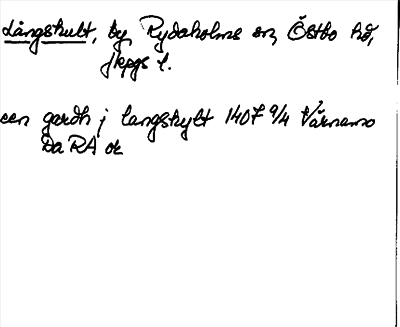 Långshult, by, Rydaholms sn, Östbo hd,
Jkpgs l.
een gardh j langshylt 1407 9/4 Värnamo
Da RA or